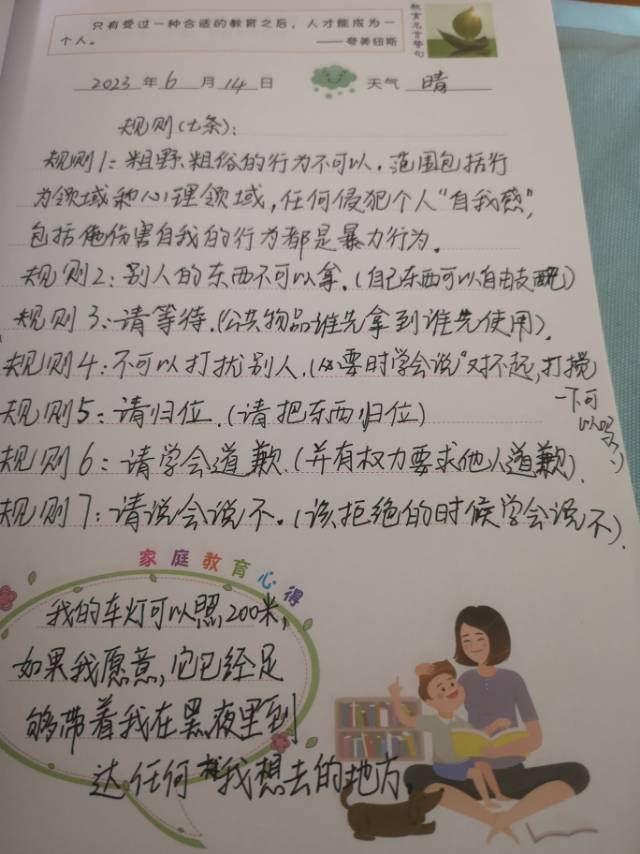 只有受过一种合适的教育之后，人才能成为一
个人。 ——夸美纽斯
教育名言警句
2023 年 6 月 14 日 天气 晴
规则(七条)：
规则1：粗野、粗俗的行为不可以，范围包括行
为领域和心理领域，任何侵犯个人“自我感”，
包括他伤害自我的行为都是暴力行为。
规则2：别人的东西不可以拿。(自己东西可以自由支配)
规则3：请等待。(公共物品谁先拿到谁先使用)。
规则4：不可以打扰别人。(必要时学会说“对不起，打搅
一下可
以吗？”)
规则5：请归位。(请把东西归位)
规则6：请学会道歉。(并有权力要求他人道歉)。
规则7：请说会说不。(该拒绝的时候学会说不)。
家庭教育心得
我的车灯可以照200米，
如果我愿意，它已经足
够带着我在黑夜里到
达任何我想去的地方。